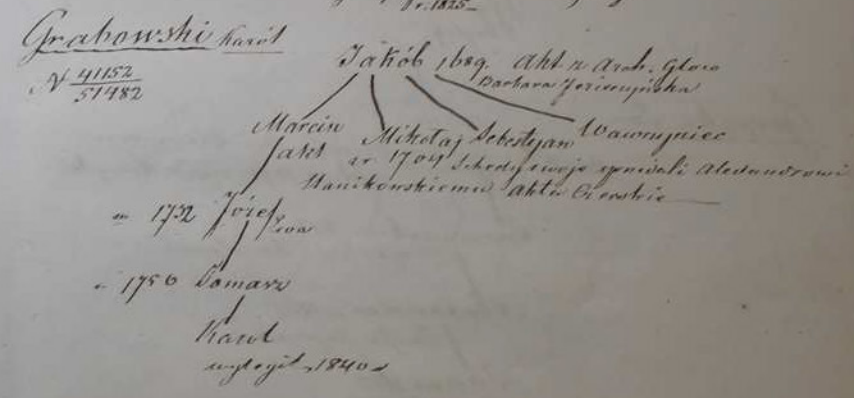 r. 1825
Grabowski Karól
N 41152
51482
Jakób 1689. Akt z Arch. Głow
Barbara
Marcin Mikołaj Sebestyan Wawrzyniec
akt w 1704 Schedy swoje sprzedali Alexandrowi
Stanikowskiemu Akta
1732 Józef
Ewa
1756 Tomasz
Karol
wylegit. 1840